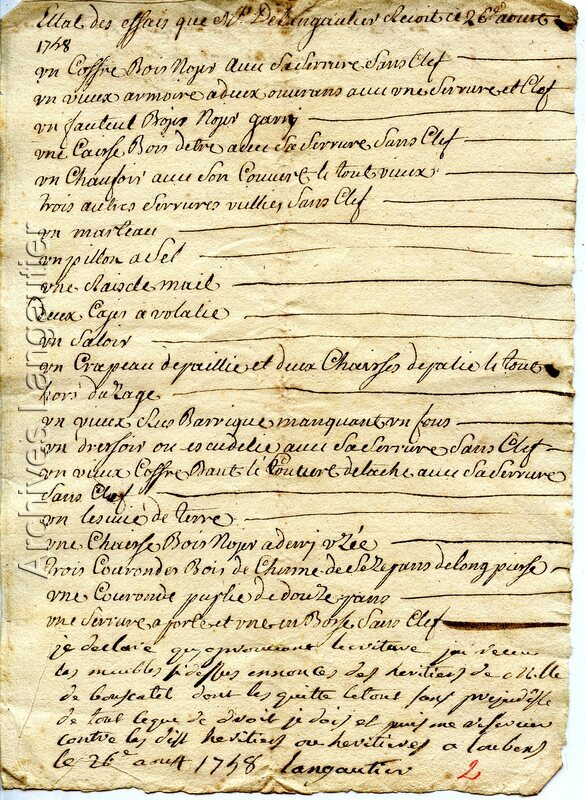 Ettat des effais que Mr. De Langautier Recoit ce 26e. aoust
1758
vn Coffre Bois Noyer avec Sa Serrure Sans Clef
vn vieux armoire a deux ouvrans avec vne Serrure et Clef
vn fauteul Bois Noyer garny
vne Caisse Bois detre avec Sa Serrure Sans Clef
vn Chaufoir avec Son Couvere le tout vieux
trois autres Serrures vullies Sans Clef
vn marteau
vn pillon a Sel
vne de mail
deux Cajes a volalie
vn Saloir
vn Crapeau de paillie et deux Chaisses de palie le tout
hors duzage
vn vieux Barrique manquant vn fons
vn dressoir ou escudelie avec Sa Serrure Sans Clef
vn vieux Coffre Dant le Couvere detaché avec Sa Serrure
Sans Clef
vn de terre
vne Chaisse Bois Noyer a demy vzée
trois Courondes Bois de Chainne de Seze pans de long
vne Couronde de douze pans
vne Serrure a porte et vne in Bosse Sans Clef
je declare qu'aprouvant lecriture jai receu
les meubles si dessus ennonces des heritiers de Mille
de bouscatel dont les quitte le tout sans prejudisse
de tout ce que de droit je dois et puis me
contre les dist heritiers ou heritieres a loubens
le 26e aoust 1758 Langautier
2
Archives Langautier